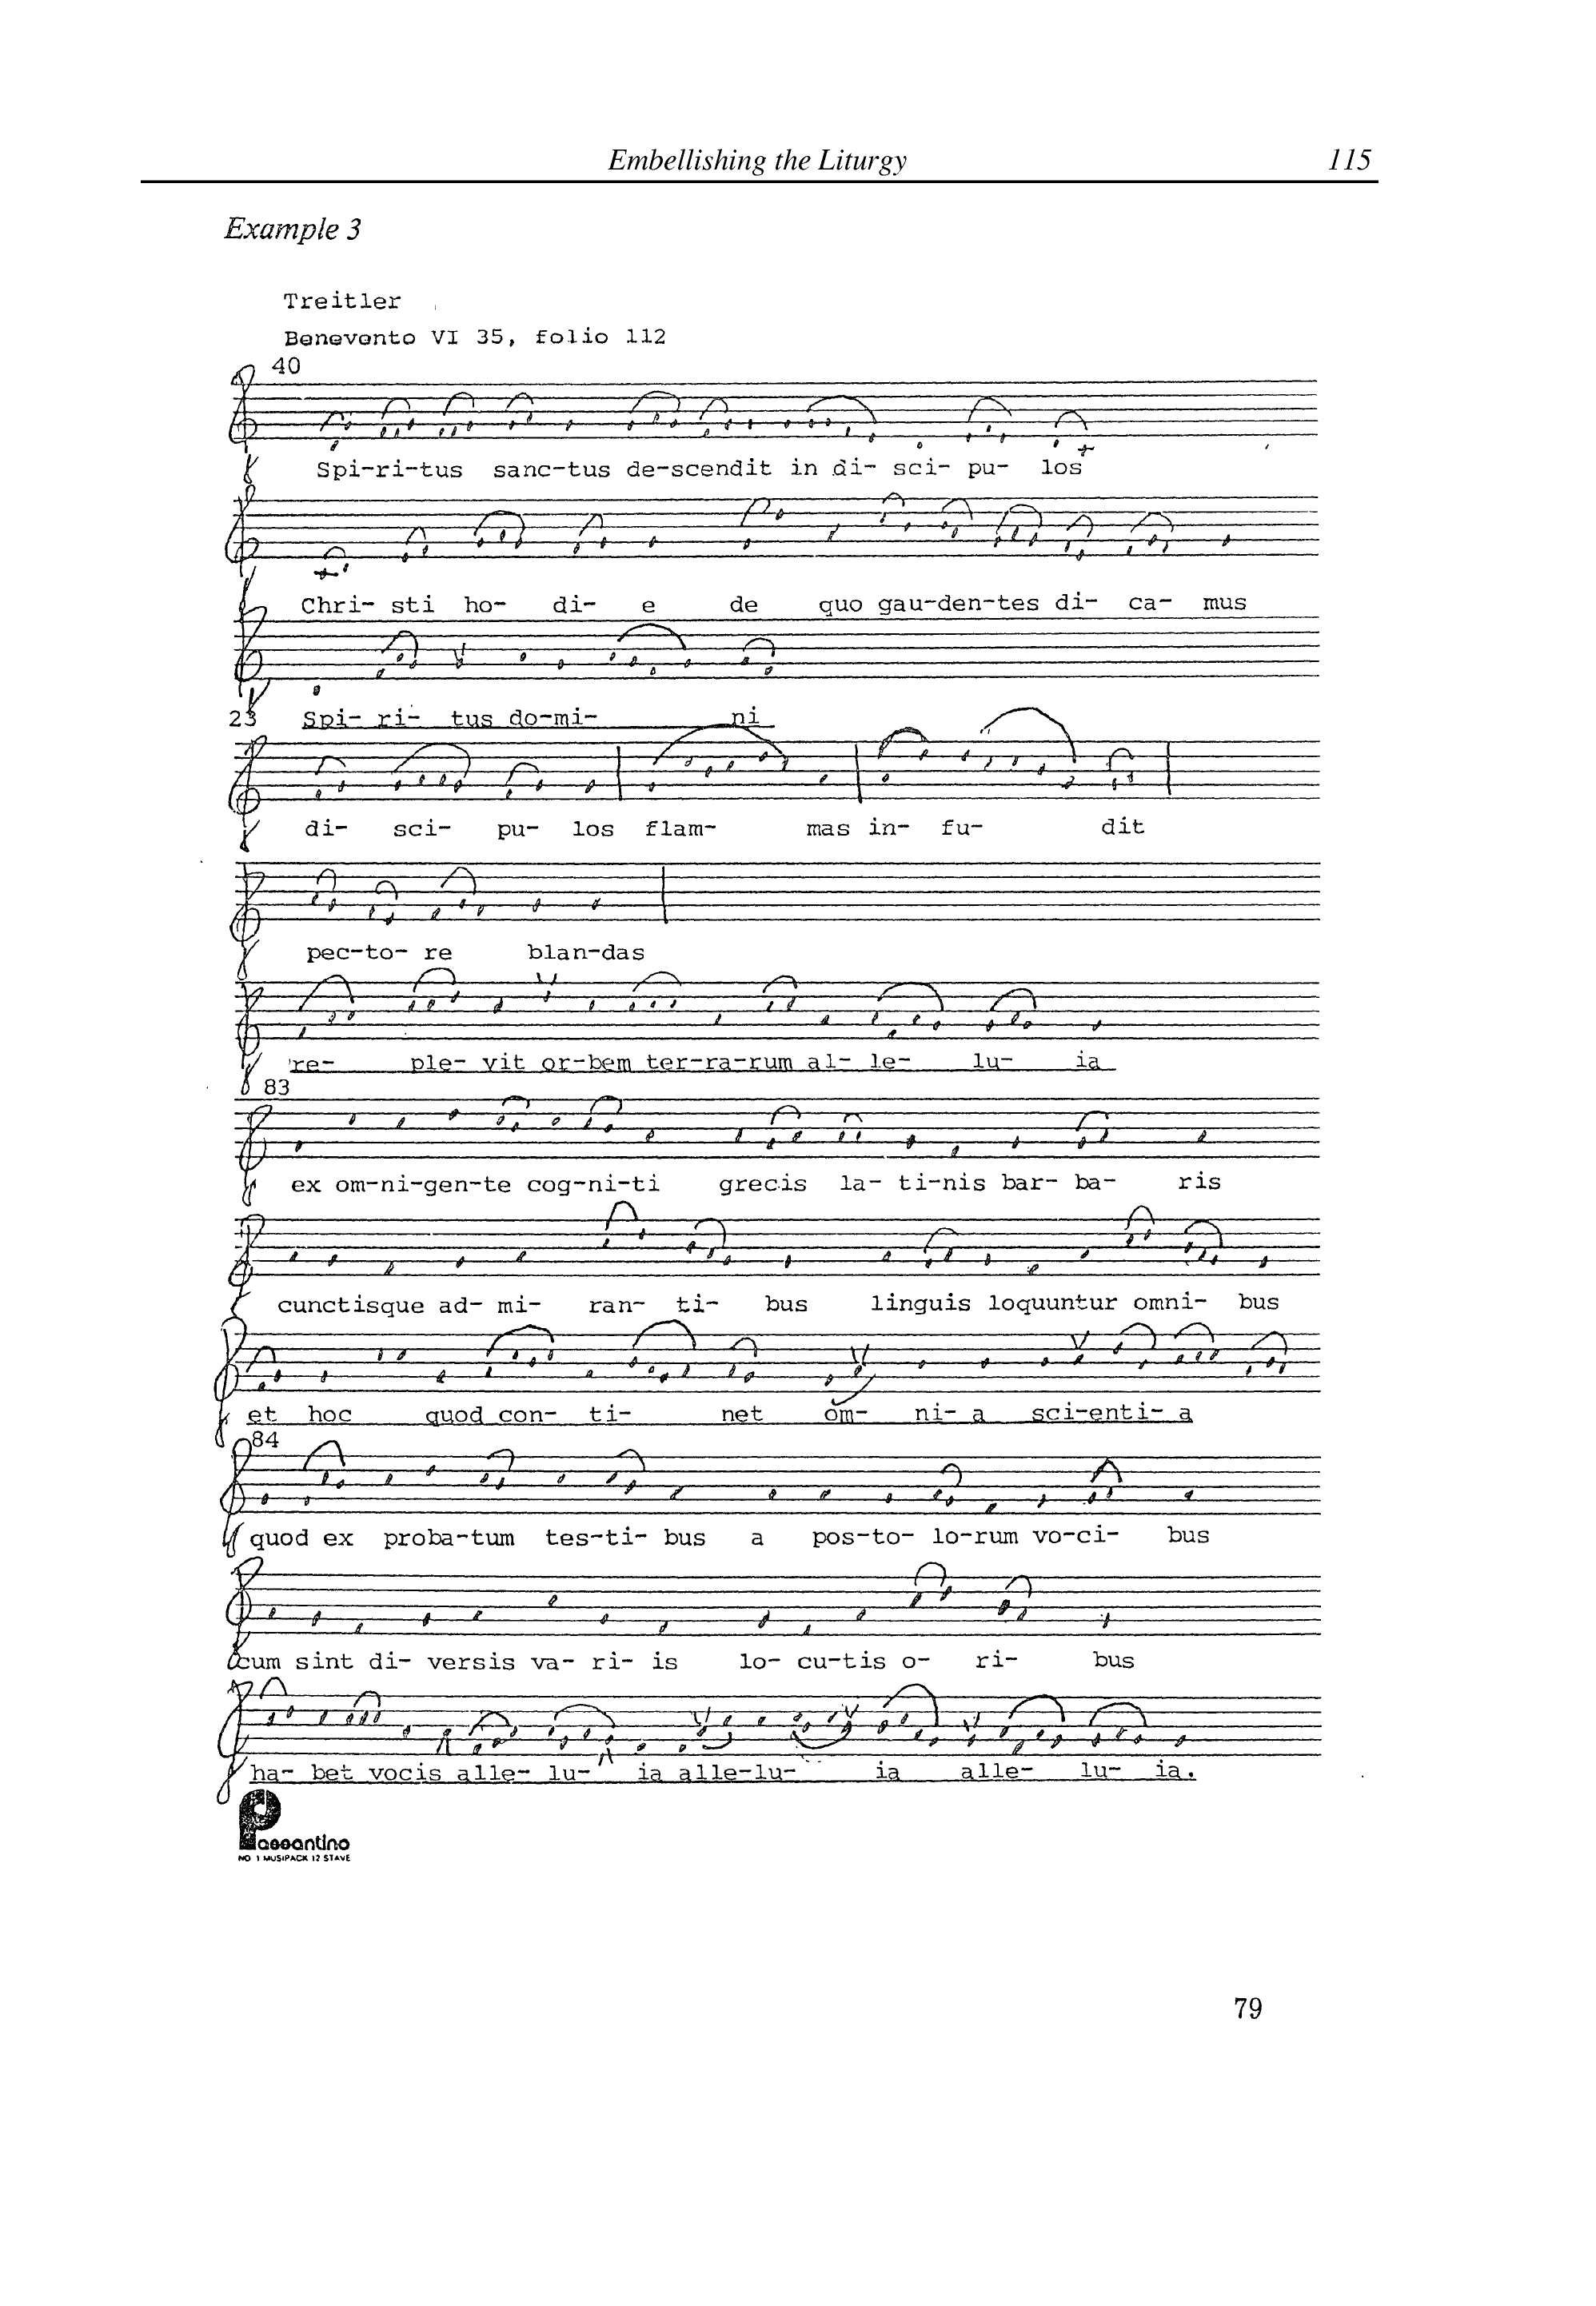 Embellishing the Liturgy 115
Example 3
Treitler
Benevento VI 35, folio 112
40
Spi-ri-tus sanc-tus de-scendit in di- sci- pu- los
Chri- sti ho- di- e de quo gau-den-tes di- ca- mus
23 Spi- ri- tus do-mi- ni
di- sci- pu- los flam- mas in- fu- dit
pec-to- re blan-das
re- ple- vit or-bem ter-ra-rum al- le- lu- ia
83
ex om-ni-gen-te cog-ni-ti grecis la- ti-nis bar- ba- ris
cunctisque ad- mi- ran- ti- bus linguis loquuntur omni- bus
et hoc quod con- ti- net om- ni- a sci-enti- a
84
quod ex proba-tum tes-ti- bus a pos-to- lo-rum vo-ci- bus
cum sint di- versis va- ri- is lo- cu-tis o- ri- bus
ha- bet vocis alle- lu- ia alle-lu- ia alle- lu- ia.
Passantino
NO 1 MUSIPACK 12 STAVE
79